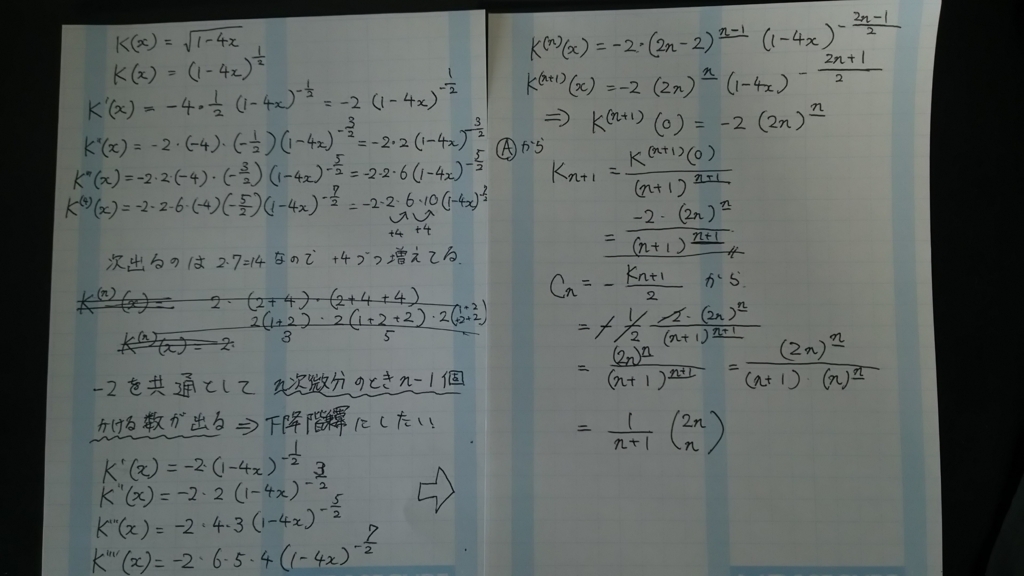 K(x) = √1-4x
K(x) = (1-4x)^{1/2}
K'(x) = -4・1/2 (1-4x)^{-1/2} = -2 (1-4x)^{-1/2}
K''(x) = -2・(-4)・(-1/2)(1-4x)^{-3/2} = -2・2(1-4x)^{-3/2}
K'''(x) = -2・2(-4)・(-3/2)(1-4x)^{-5/2} = -2・2・6(1-4x)^{-5/2}
K^{(4)}(x) = -2・2・6・(-4)(-5/2)(1-4x)^{-7/2} = -2・2・6・10(1-4x)^{-7/2}
+4 +4
次出るのは 2・7=14 なので +4づつ増えてる.
K^{(n)}(x) = 2・(2+4)・(2+4+4)
2(1+2)・2(1+2+2)・2(1+2+2+2)
3 5
K^{(n)}(x) = 2・
-2を共通として n次微分のときn-1個
かける数が出る ⇒ 下降階乗にしたい
K'(x) = -2・(1-4x)^{-1/2}
K''(x) = -2・2(1-4x)^{-3/2}
K'''(x) = -2・4・3(1-4x)^{-5/2}
K''''(x) = -2・6・5・4(1-4x)^{-7/2}
⇨
K^{(n)}(x) = -2・(2n-2)^{\underline{n-1}} (1-4x)^{-(2n-1)/2}
K^{(n+1)}(x) = -2 (2n)^{\underline{n}} (1-4x)^{-(2n+1)/2}
⇒ K^{(n+1)}(0) = -2 (2n)^{\underline{n}}
Ⓐから
K_{n+1} = K^{(n+1)}(0) / (n+1)^{\underline{n+1}}
= -2・(2n)^{\underline{n}} / (n+1)^{\underline{n+1}}
C_n = - K_{n+1}/2 から
= - 1/2 -2・(2n)^{\underline{n}} / (n+1)^{\underline{n+1}}
= (2n)^{\underline{n}} / (n+1)^{\underline{n+1}} = (2n)^{\underline{n}} / (n+1)・(n)^{\underline{n}}
= 1/(n+1) (2n n)